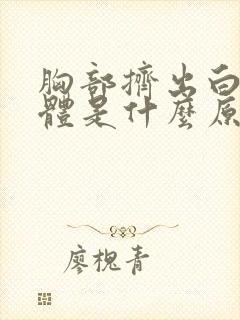 胸部擠出白
體是什麼原
廖槐青